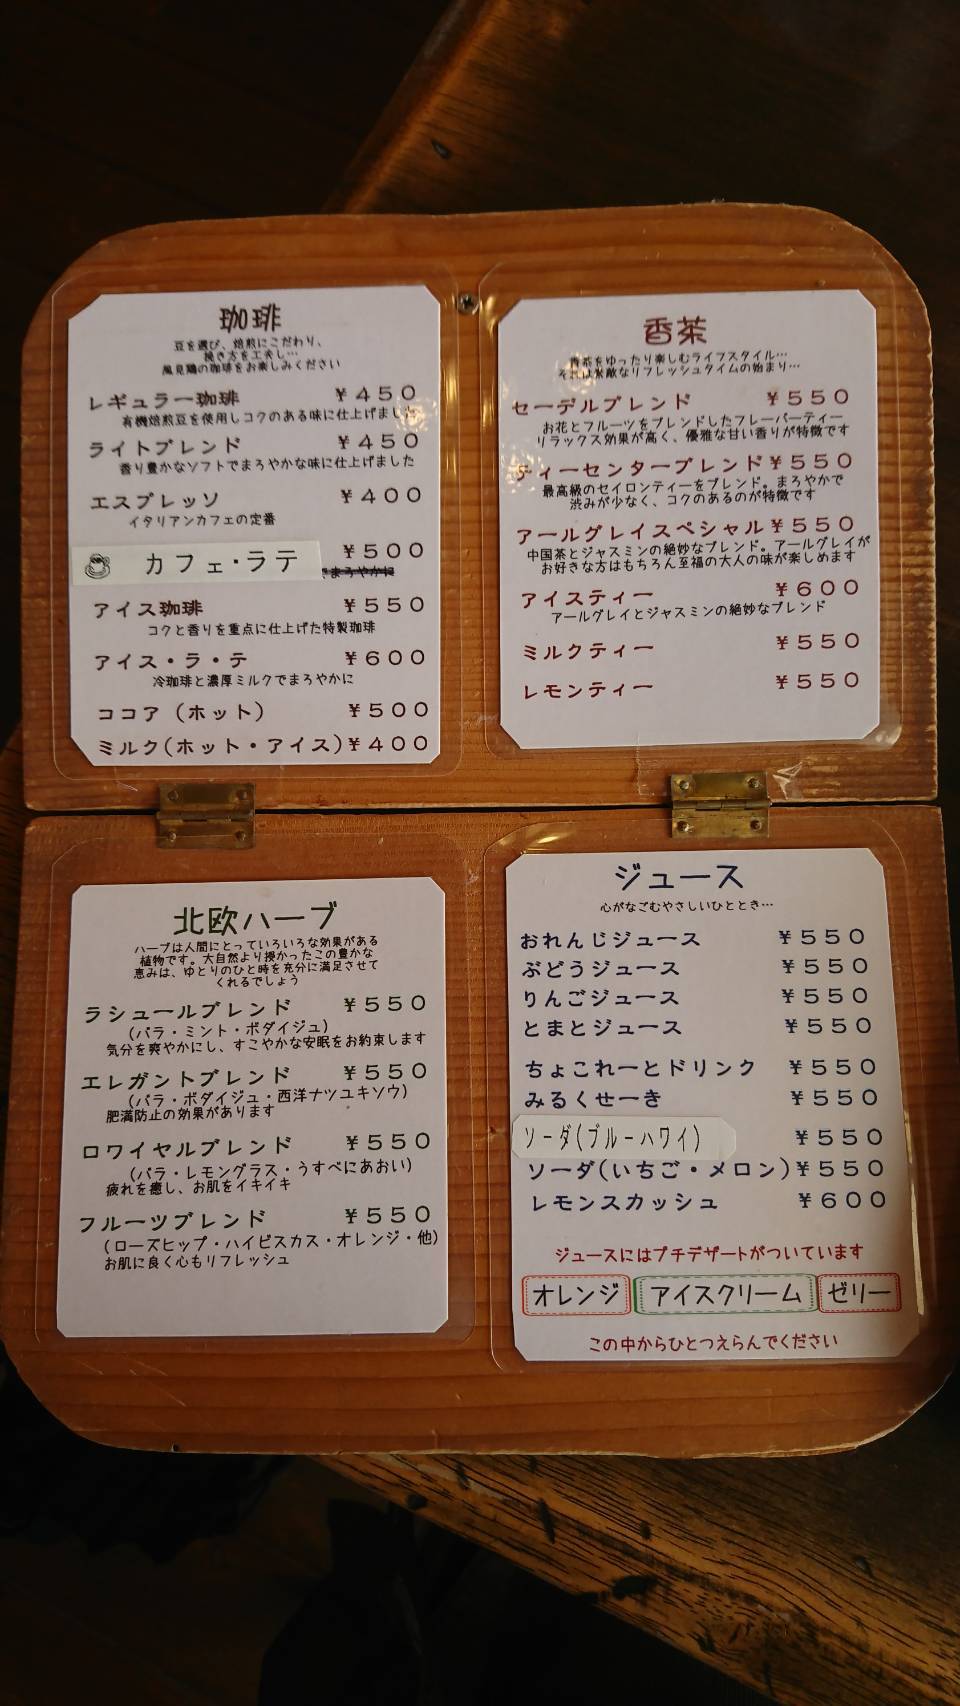 珈琲
豆を選び、焙煎にこだわり、
挽き方を工夫し…
風見鶏の珈琲をお楽しみください
レギュラー珈琲 ￥４５０
有機焙煎豆を使用しコクのある味に仕上げました
ライトブレンド ￥４５０
香り豊かなソフトでまろやかな味に仕上げました
エスプレッソ ￥４００
イタリアンカフェの定番
カフェ・ラテ ￥５００
まろやかに
アイス珈琲 ￥５５０
コクと香りを重点に仕上げた特製珈琲
アイス・ラ・テ ￥６００
冷珈琲と濃厚ミルクでまろやかに
ココア（ホット） ￥５００
ミルク(ホット・アイス)￥４００
香茶
香茶をゆったり楽しむライフスタイル…
それは素敵なリフレッシュタイムの始まり…
セーデルブレンド ￥５５０
お花とフルーツをブレンドしたフレーバーティー
リラックス効果が高く、優雅な甘い香りが特徴です
ティーセンターブレンド￥５５０
最高級のセイロンティーをブレンド。まろやかで
渋みが少なく、コクのあるのが特徴です
アールグレイスペシャル￥５５０
中国茶とジャスミンの絶妙なブレンド。アールグレイが
お好きな方はもちろん至福の大人の味が楽しめます
アイスティー ￥６００
アールグレイとジャスミンの絶妙なブレンド
ミルクティー ￥５５０
レモンティー ￥５５０
北欧ハーブ
ハーブは人間にとっていろいろな効果がある
植物です。大自然より授かったこの豊かな
恵みは、ゆとりのひと時を充分に満足させて
くれるでしょう
ラシュールブレンド ￥５５０
(バラ・ミント・ボダイジュ)
気分を爽やかにし、すこやかな安眠をお約束します
エレガントブレンド ￥５５０
(バラ・ボダイジュ・西洋ナツユキソウ)
肥満防止の効果があります
ロワイヤルブレンド ￥５５０
(バラ・レモングラス・うすべにあおい)
疲れを癒し、お肌をイキイキ
フルーツブレンド ￥５５０
(ローズヒップ・ハイビスカス・オレンジ・他)
お肌に良く心もリフレッシュ
ジュース
心がなごむやさしいひととき…
おれんじジュース ￥５５０
ぶどうジュース ￥５５０
りんごジュース ￥５５０
とまとジュース ￥５５０
ちょこれーとドリンク ￥５５０
みるくせーき ￥５５０
ソーダ(ブルーハワイ) ￥５５０
ソーダ(いちご・メロン)￥５５０
レモンスカッシュ ￥６００
ジュースにはプチデザートがついています
オレンジ アイスクリーム ゼリー
この中からひとつえらんでください